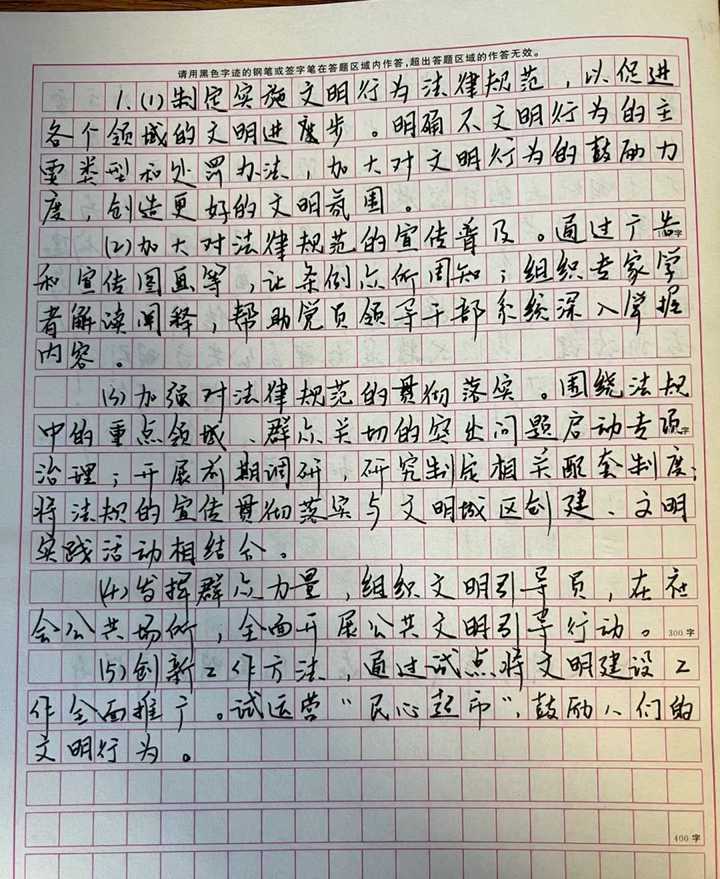 请用黑色字迹的钢笔或签字笔在答题区域内作答,超出答题区域的作答无效。
1.(1)制定实施文明行为法律规范，以促进
各个领域的文明进度步。明确不文明行为的主
要类型和处罚办法，加大对文明行为的鼓励力
度，创造更好的文明氛围。
(2)加大对法律规范的宣传普及。通过广告
和宣传图画等，让条例众所周知；组织专家学
者解读阐释，帮助党员领导干部系统深入掌握
内容。
(3)加强对法律规范的贯彻落实。围绕法规
中的重点领域、群众关切的突出问题启动专项
治理；开展前期调研，研究制定相关配套制度；
将法规的宣传贯彻落实与文明城区创建、文明
实践活动相结合。
(4)发挥群众力量，组织文明引导员，在社
会公共场所，全面开展公共文明引导行动。
300字
(5)创新工作方法，通过试点将文明建设工
作全面推广。试运营“民心起币”，鼓励人们的
文明行为。
400字